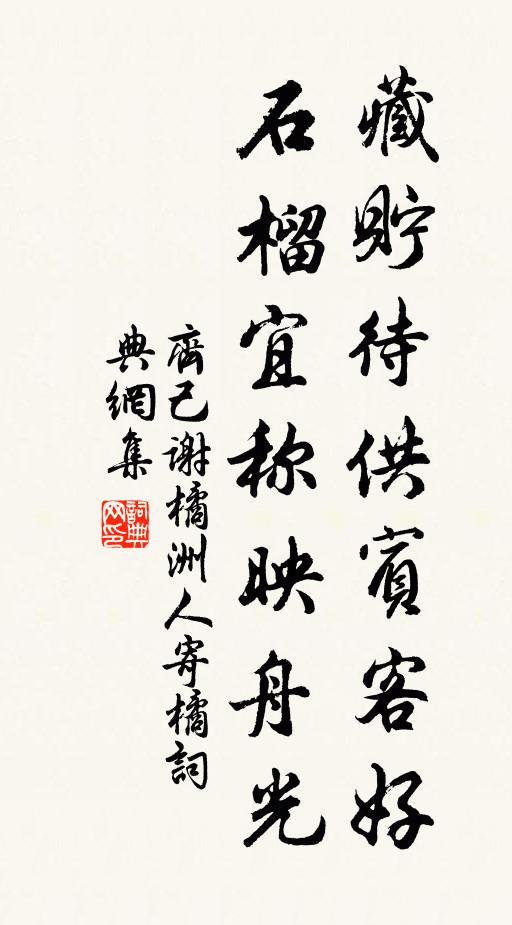 藏貯待供賓客好
石榴宜称映舟光
齊己謝橘洲人寄橘詞
典網集
詞典
网印